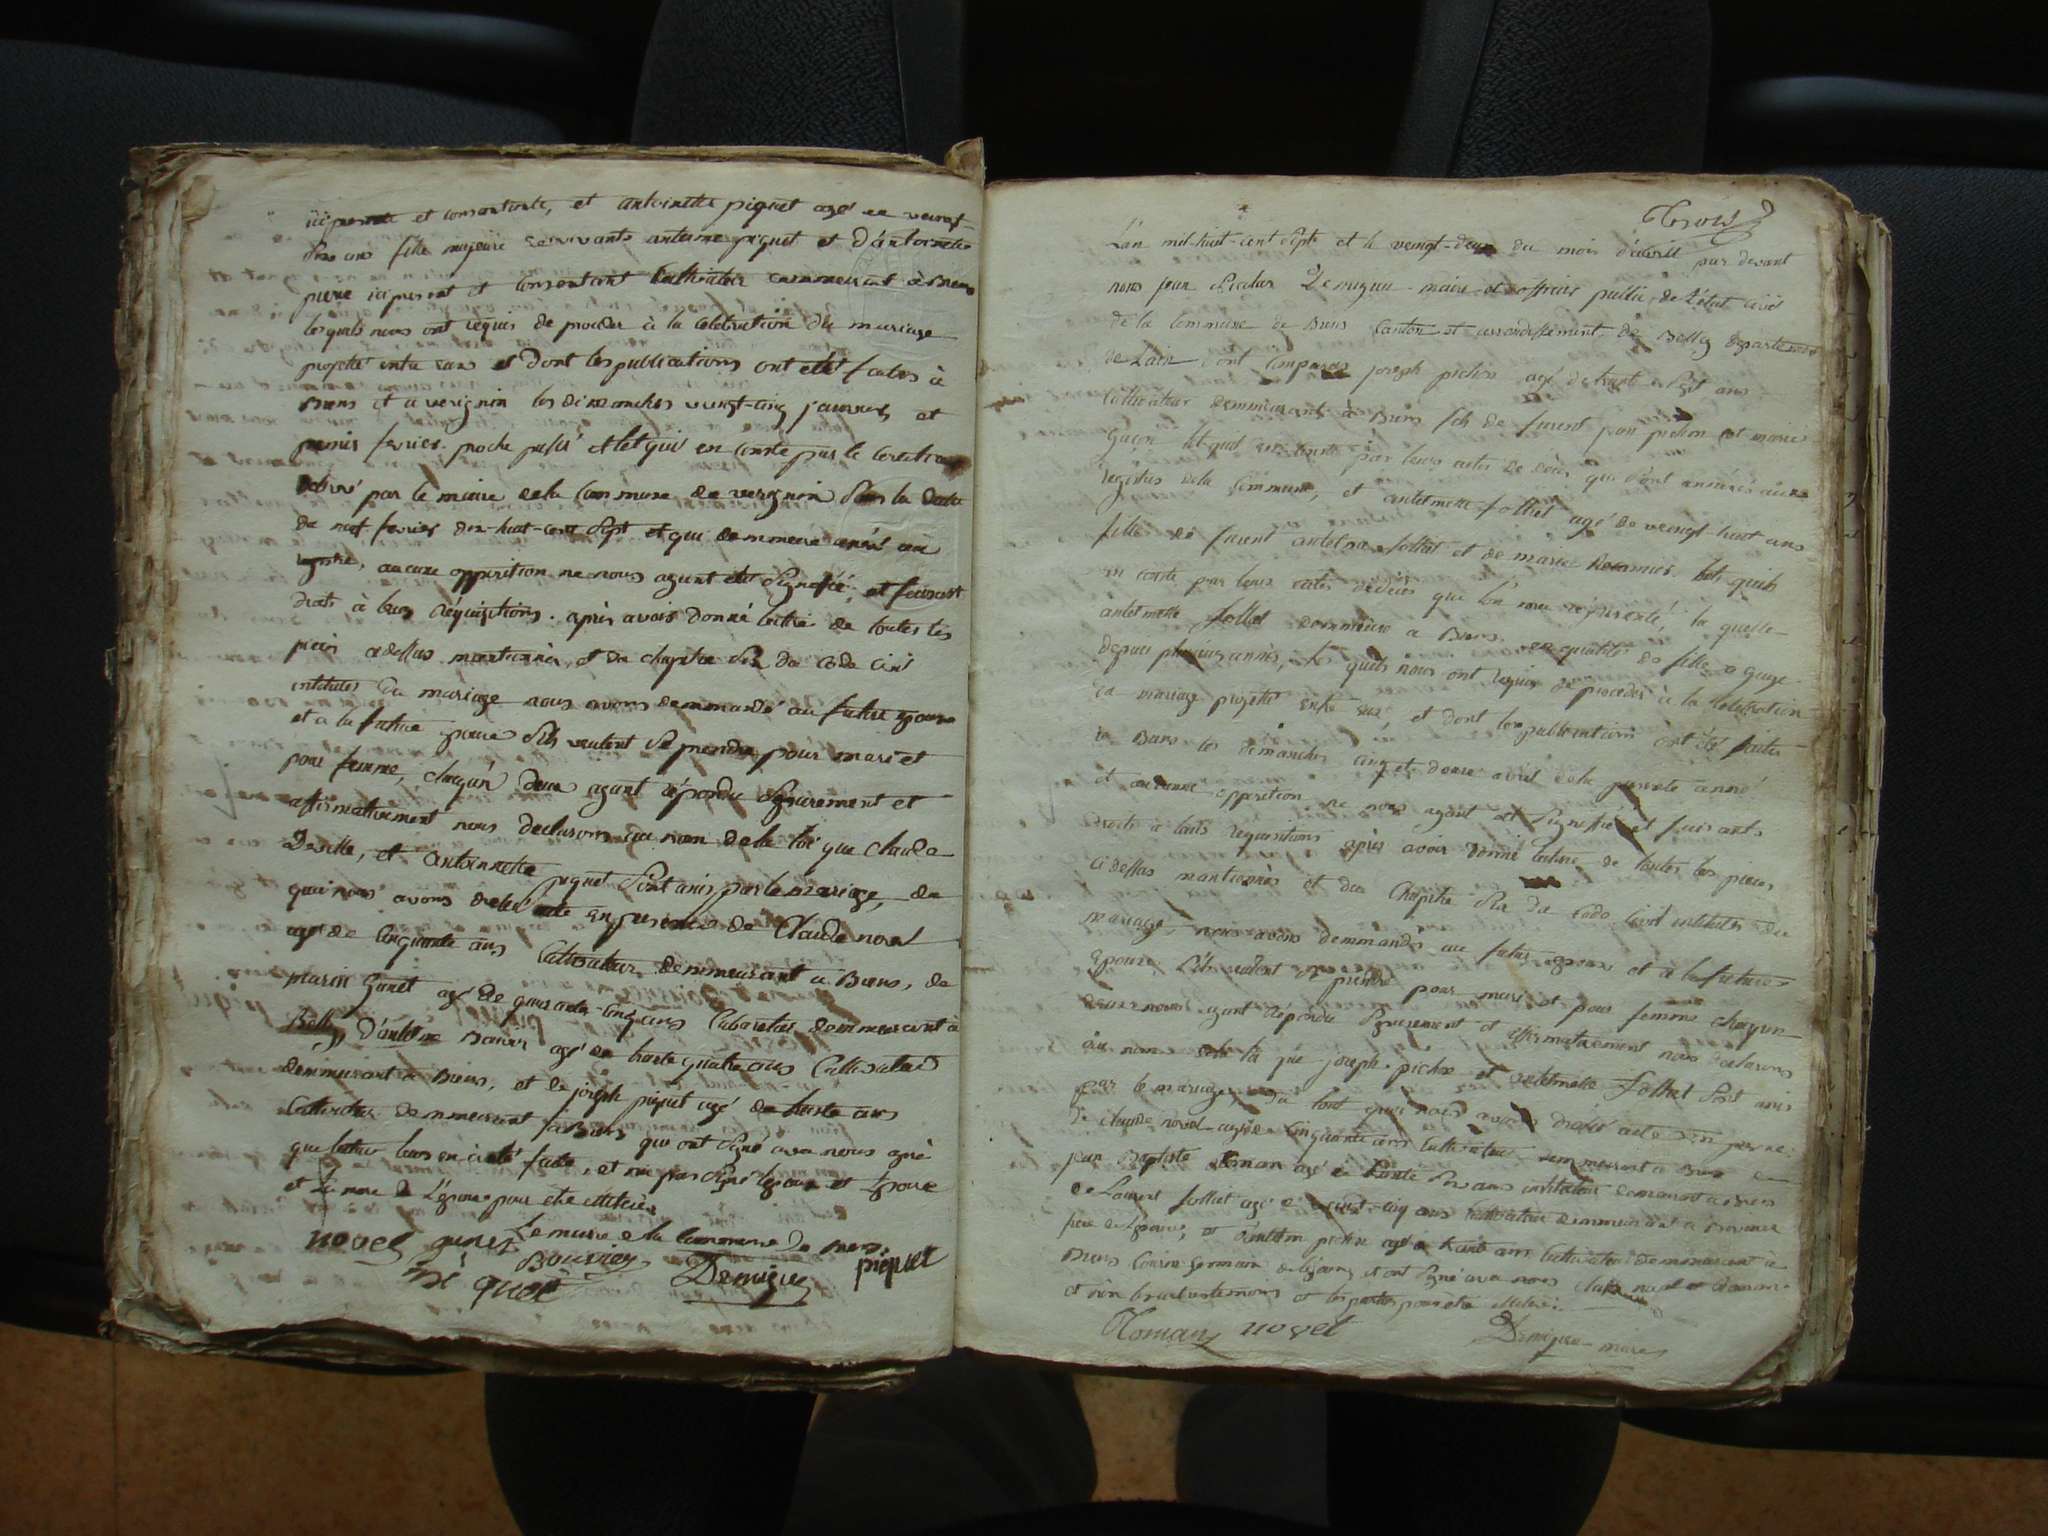 ici presente et consentante, et antoinette piquet agé de veingt-
deux ans fille majeure vivants antoine piquet et d'antoinette
piere ici present et consentant Cultivateur demmeurant à Brens
lesquels nous ont requis de proceder à la celebration du mariage
projetté entre eux et dont les publications ont etté faites à
Brens et a verignin les dimanches veingt-cinq janvier et
premier fevrier proche passé et let quil en conste par le certificat
delivré par le maire dela Commune de verignin sous la datte
du neuf fevrier dix-huit-cent sept et qui demmeure anéxé au
registre, aucune opposition ne nous ayant eté Signiffié, et faisant
droit à leurs réquisitions. après avoir donné lecture de toutes les
pieces cidessus mantionnées, et du chapitre Six du Code Civil
intitulés du mariage nous avons demmandé au future epoux
et a la future epouse s'ils veulent se prendre pour mari et
pour femme, chaqun deux ayant répondu Séparement et
affirmativement nous declarons au nom dela loi que claude
Deville, et antoinette piquet Sont unis par le mariage, de
quoi nous avons dréssé acte En presence de Claude novel
agé de Cinquante ans Cultivateur demmeurant à Brens, de
marin Genet agé de quarante-cinq ans Cabaretier demmeurant à
Belley, d'antelme Bouvier agé de trente quatre ans Cultivateur
demmeurant à Brens, et de joseph piquet agé de trente ans
Cultivateur demmeurant à Brens qui ont Signé avec nous aprè
que lecture leurs en a eté faite, et non pas Signé lepoux et Epouse
et La mere de L'Epoux pour etre illiterés
Le maire de la Commune de Brens
novel genet Bouvier Demigieu piquet
Pi quet
Trois
L'an mil-huit-cent Sept et le veingt-deux du mois d'avril par devant
nous jean Demigieu maire et officier public de L'état civil
de la Commune de Brens Canton et arrondissement de Belley departement
de Lain, ont Comparus joseph pichon agé de trente Sept ans
Cultivateur demmeurant à Brens fils de furent jean pichon et marie
quil en conste par leurs actes de décès qui sont annéxés aux
registres dela Commune, et antelmette folliet agé de veingt-huit ans
fille de furent antelme folliet et de marie lets quils
en conste par leurs actes dédécès que l'on nous a présenté, la quelle
antelmette folliet demmeure a Brens en qualité de fille a gage
depuis plusieurs années, les quels nous ont requis de proceder à la celebration
du mariage projetté entre eux, et dont les publications ont été faites
a Brens les dimanches cinq et douze avril dela presente année
et aucunne opposition ne nous ayant eté Signiffié et faisants
droits à leurs requisitions après avoir donné lecture de toutes les pieces
cidessus mantionnées et du Chapitre Six du Code Civil intitulés du
mariage, nous avons demmandé au futur epoux et a la future
epouse S'ils veulent se prendre pour mari et pour femme chaqun
deux nous ayant répondu Séparement et affirmativement nous declarons
au nom dela loi que joseph pichon et antelmette folliet Sont unis
par le mariage, du tout quoi nous avons dréssé acte en presence
de claude novel agé de Cinquante ans Cultivateur demmeurant a Brens de
jean Baptiste Roman agé de trente Six ans instituteur demeurant a Brens
de Laurent folliet agé de veingt-cinq ans Cultivateur demmeurant a
frere de lépouse, et d'antelme pichon agé de trente ans Cultivateur demmeurant à
Brens Cousin Germain de lépoux, et ont Signé avec nous claude novel et Roman
et non les autres temoins et les parties pour etre illiterés
Roman novel Demigieu maire